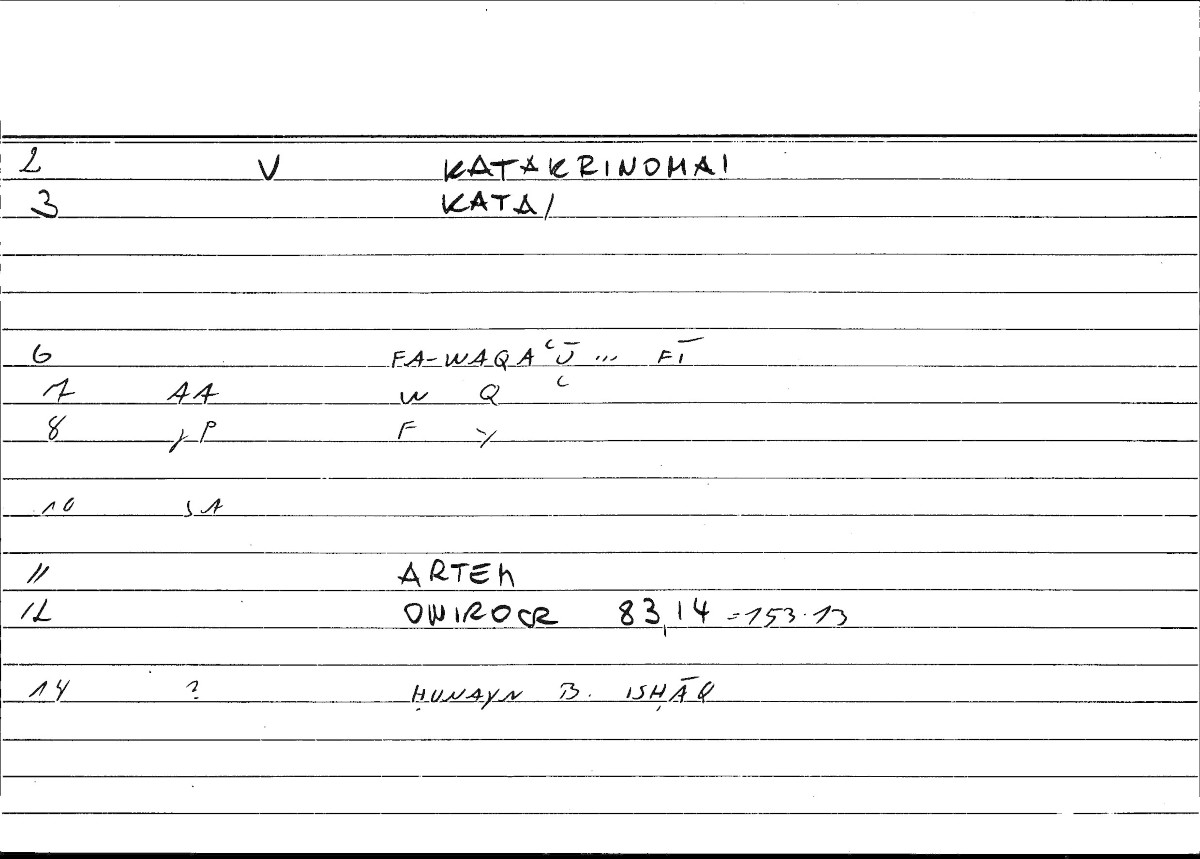 2 V KATAKRINOMAI
3 KATA/
6 FA-WAQAʿŪ ... FĪ
7 AA W Q ʿ
8 P F Y
10 SA
11 ARTEM
12 ONIROCR 83,14 = 153.13
14 ? ḤUNAYN B. ISḤĀQ